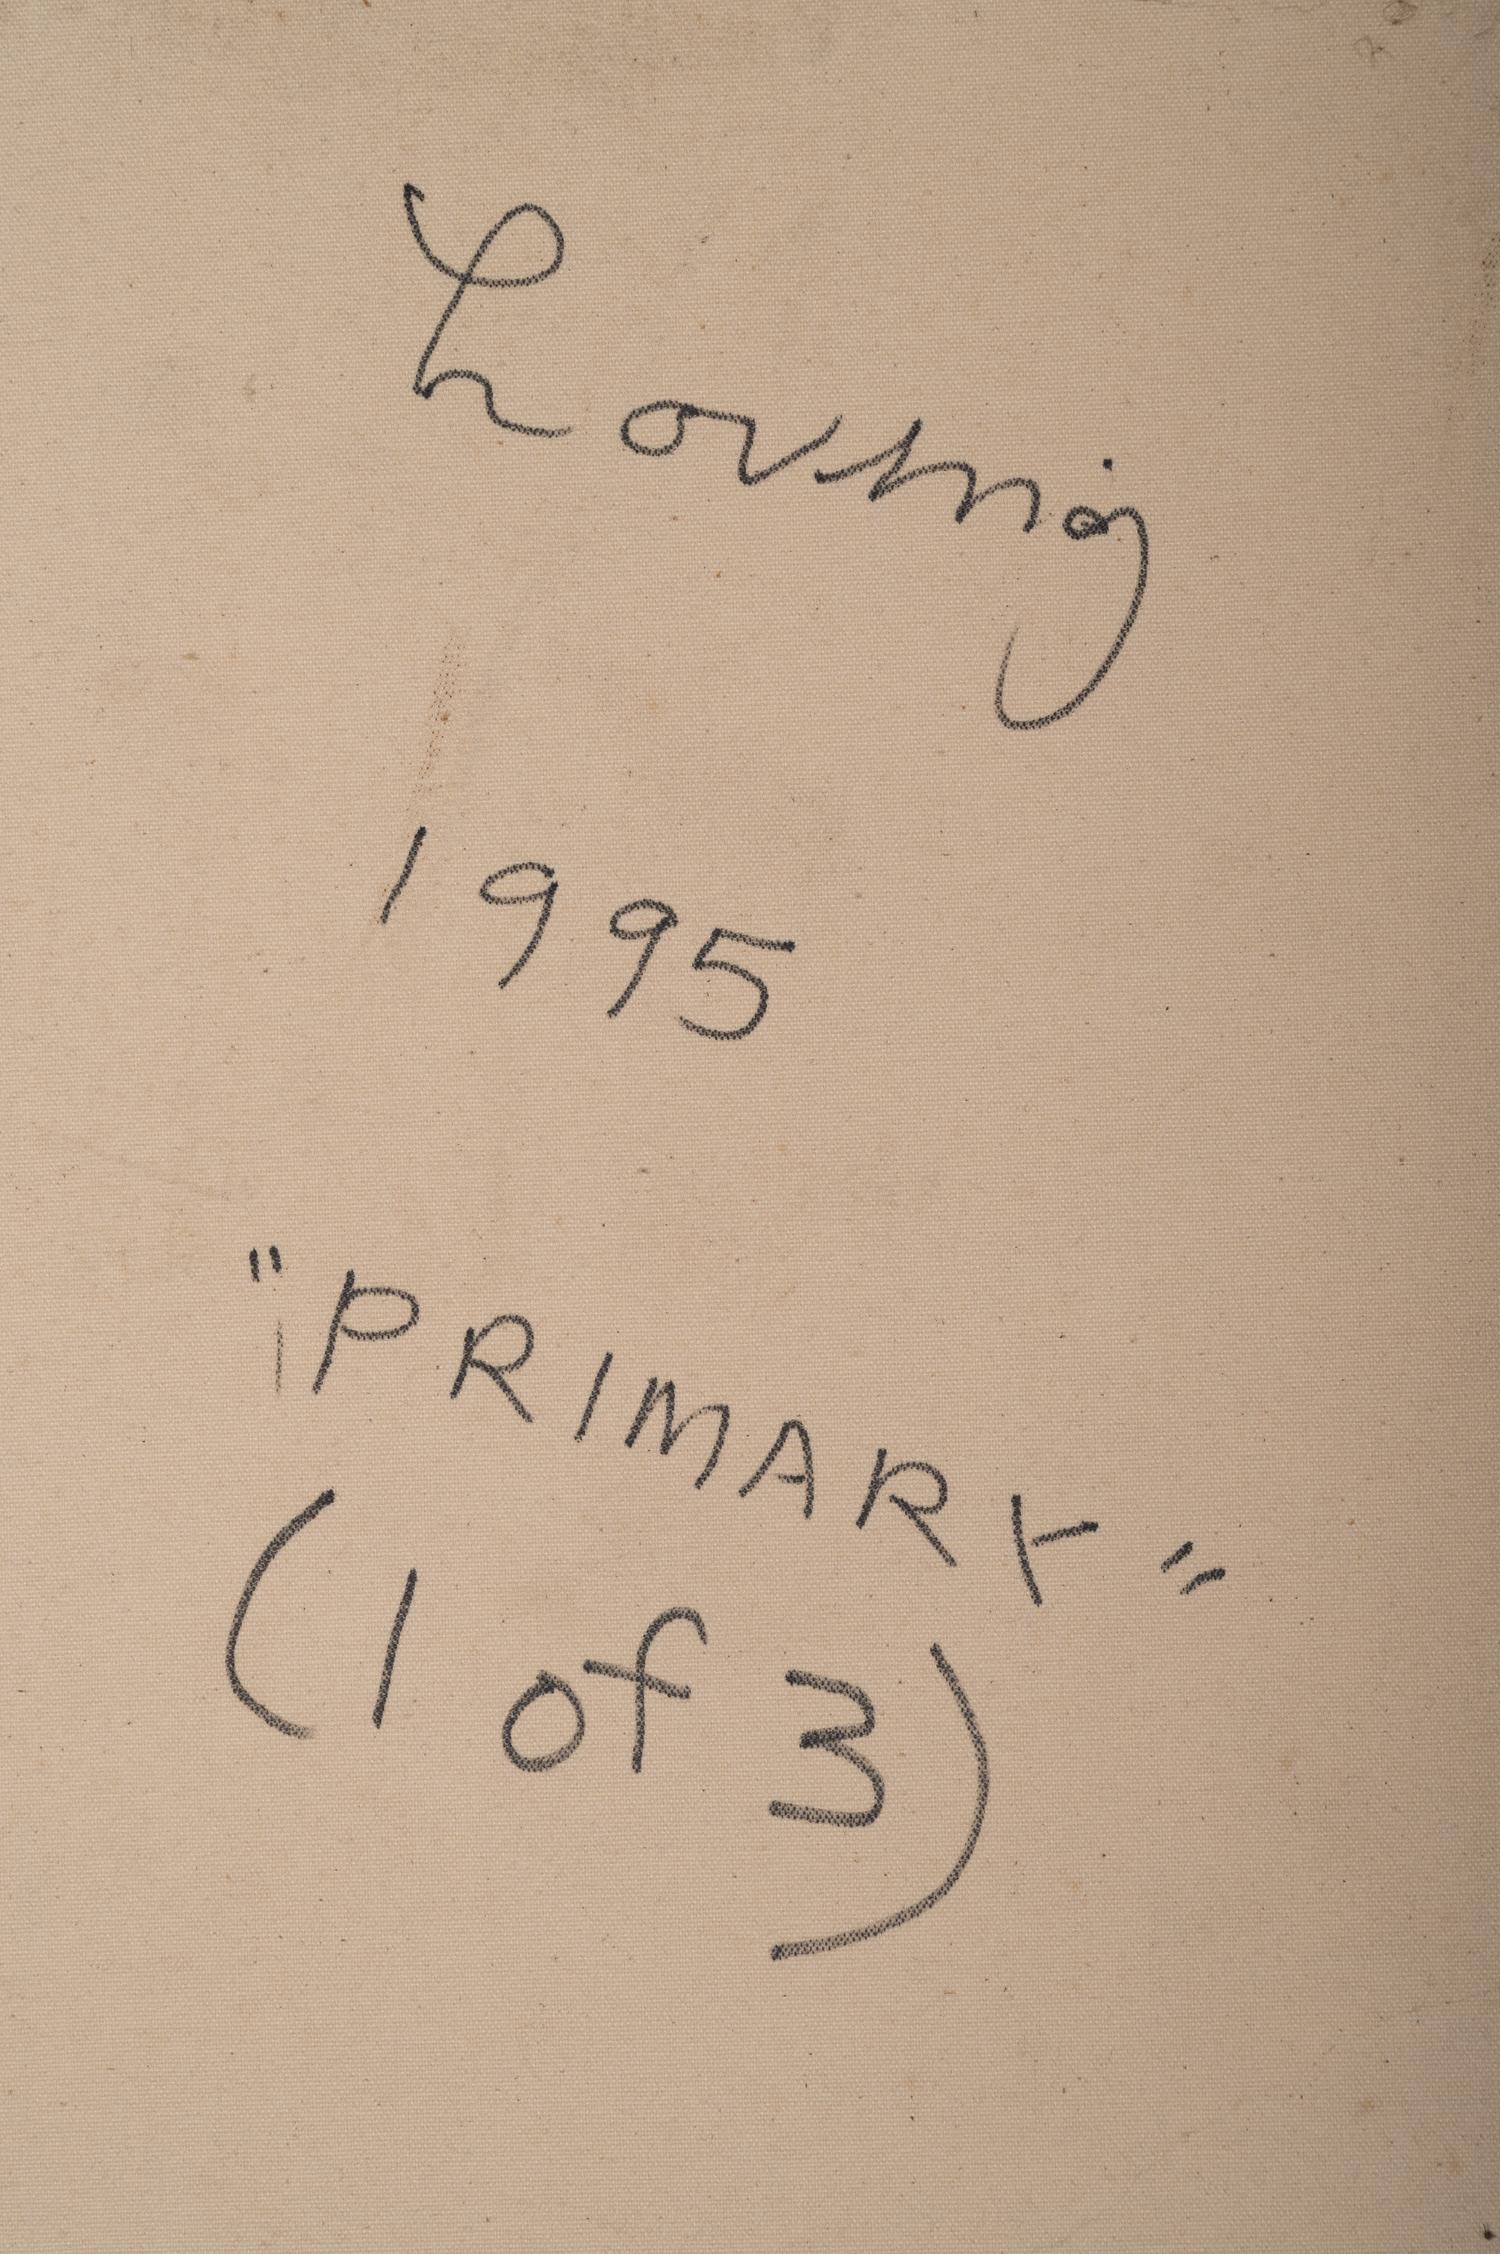 Loving
1995
"PRIMARY"
(1 of 3)